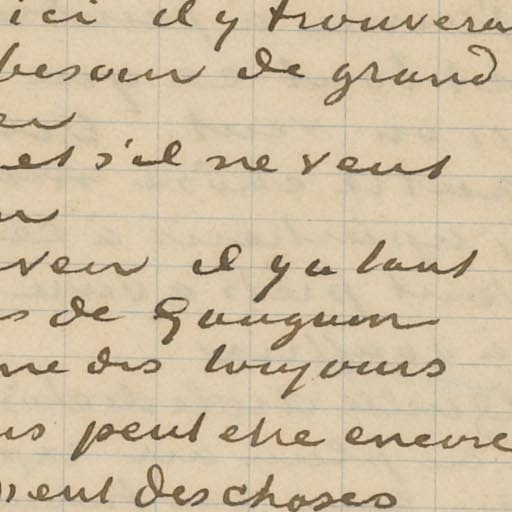 ici il y trouvera
besoin de grand
en
et s'il ne veut
venir il y a tant
s de Gauguin
me dis toujours
us peut etre encore
ment des choses